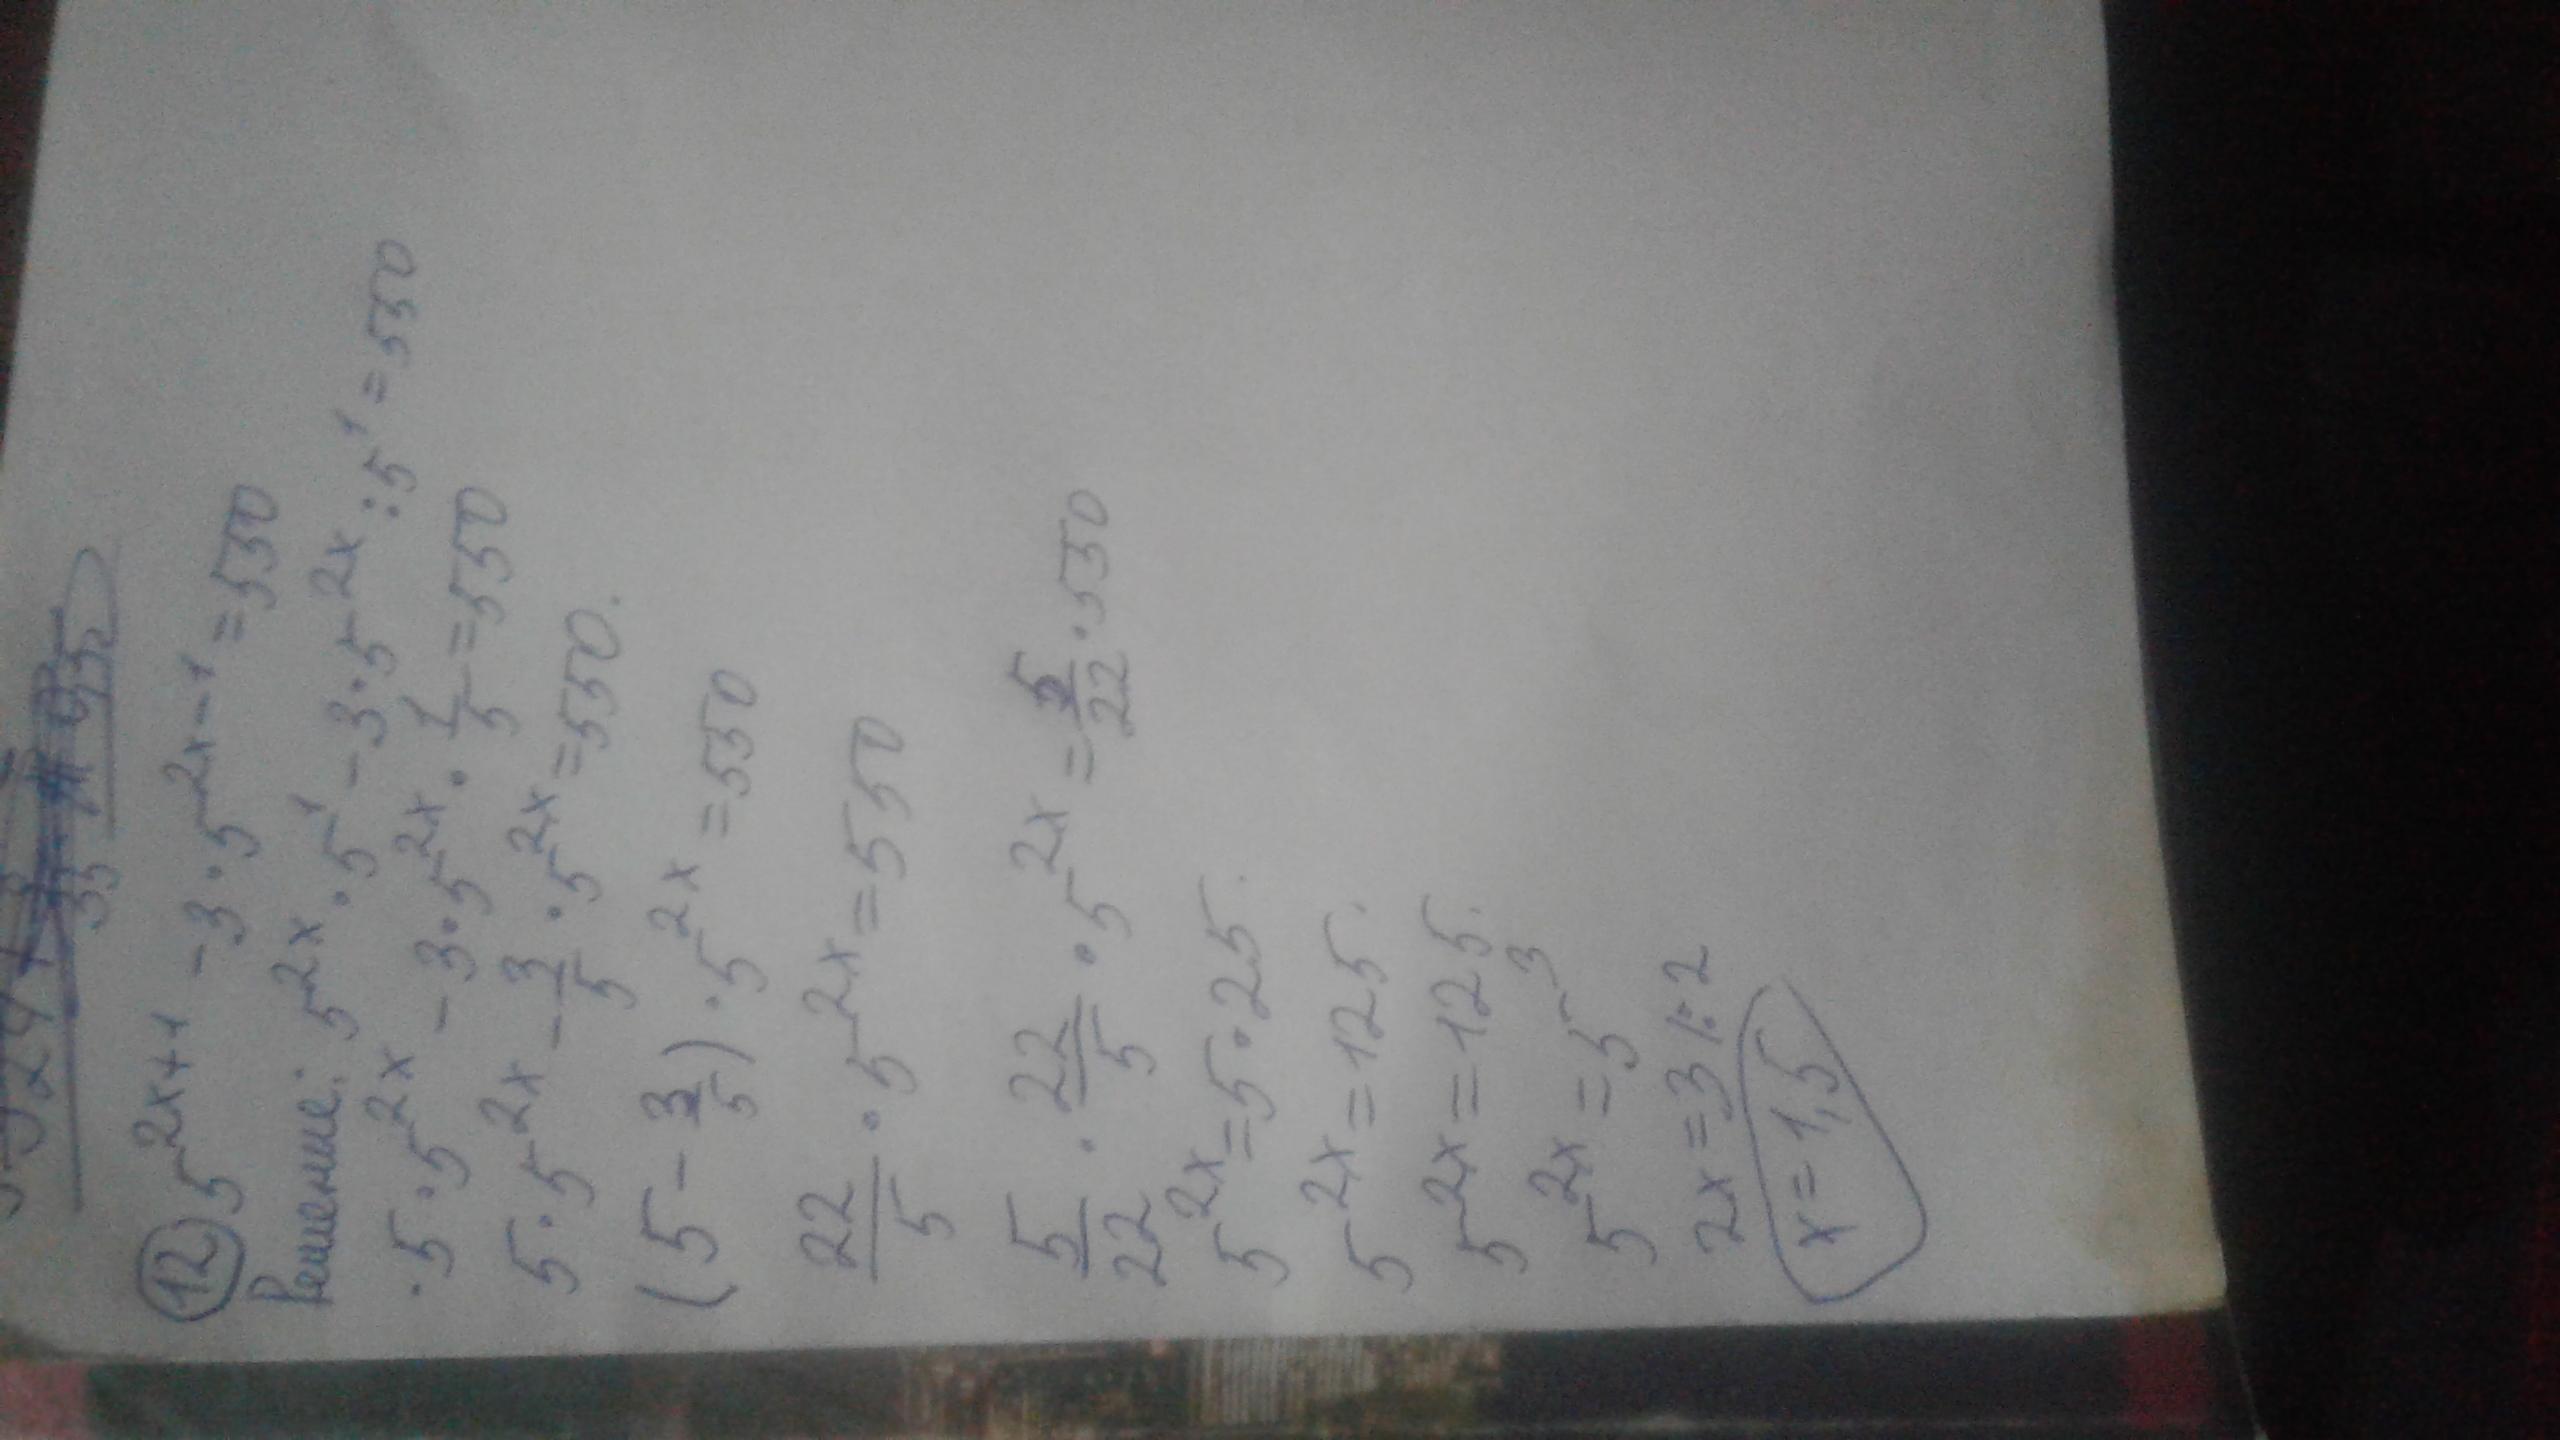 12) 5^{2x+1} - 3·5^{2x-1} = 550
Решение: 5^{2x}·5^1 - 3·5^{2x} : 5^1 = 550
·5·5^{2x} - 3·5^{2x}·\frac{1}{5} = 550
5·5^{2x} - \frac{3}{5}·5^{2x} = 550.
(5 - \frac{3}{5})·5^{2x} = 550
\frac{22}{5}·5^{2x} = 550
\frac{5}{22}·\frac{22}{5}·5^{2x} = \frac{5}{22}·550
5^{2x} = 5·25.
5^{2x} = 125.
5^{2x} = 125.
5^{2x} = 5^3
2x = 3 |:2
x = 1,5